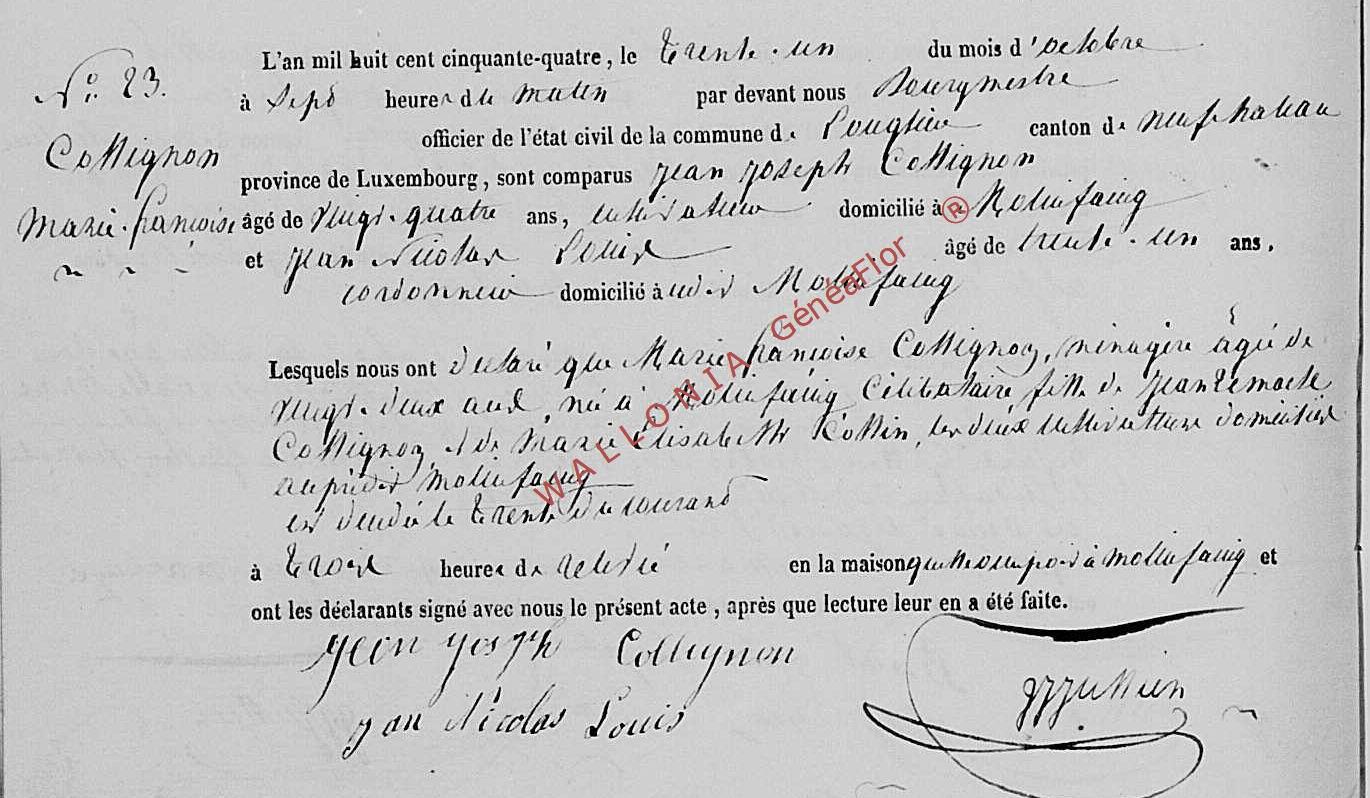 N° 23.
Collignon
Marie-françoise
L'an mil huit cent cinquante-quatre, le trente-un du mois d'octobre
à Sept heures du matin par devant nous Bourgmestre
officier de l'état civil de la commune de Longlier canton de neufchateau
province de Luxembourg, sont comparus jean joseph Collignon
âgé de vingt-quatre ans, cultivateur domicilié à Molinfaing
et jean Nicolas Louis âgé de trente-un ans.
cordonnier domicilié à Molinfaing
Lesquels nous ont declaré que Marie françoise Collignon, ménagère âgée de
vingt-deux ans, née à Molinfaing Célibataire fille de jean
Collignon et de Marie Élisabeth les deux cultivateurs
Molinfaing
est décédée le trente du courant
à trois heures de relevée en la maison à Molinfaing et
ont les déclarants signé avec nous le présent acte, après que lecture leur en a été faite.
jean joseph Collignon
jan Nicolas Louis
WALLONIA GénéaFlor ®